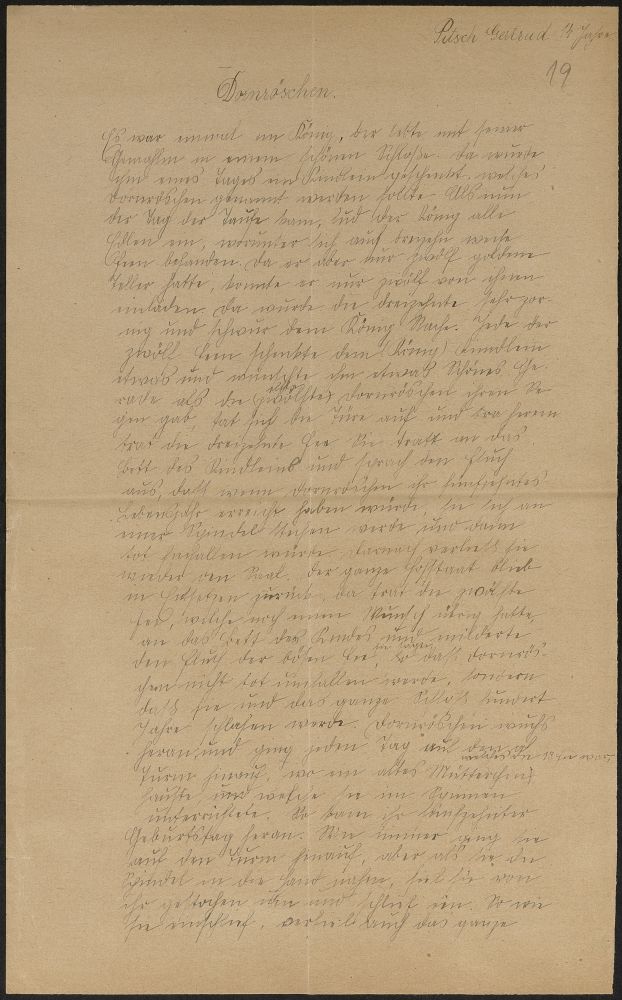 Pitsch Gertrud 13 Jahre
19
Dornröschen.
Es war einmal ein König, der lebte mit seiner
Gemahlin in einem schönen Schloße. Da wurde
ihm eines Tages ein Kindlein geschenkt, welches
Dornröschen genannt werden sollte. Als nun
der Tag der Taufe kam, lud der König alle
Edlen ein, worunter sich auch dreizehn weise
Feen befanden. Da er aber nur zwölf goldene
Teller hatte, konnte er nur zwölf von ihnen
einladen. Da wurde die dreizehnte sehr zor-
nig und schwur dem König Rache. Jede der
zwölf Feen schenkte dem (König) Kindlein
etwas und wünschte ihm etwas Schönes. Ge-
rade als die zwölfte Dornröschen ihren Se-
gen gab, tat sich die Türe auf und herein
trat die dreizehnte Fee. Sie tratt an das
Bett des Kindleins und sprach den Fluch
aus, daß wenn Dornröschen ihr fünfzehntes
Lebensjahr erreicht haben würde, sie sich an
einer Spindel stechen werde und dann
tot hinfallen würde. Darnach verließ sie
wieder den Saal. Der ganze Hofstaat blieb
in Entsetzen zurück. Da trat die zwölfte
Fee, welche noch einen Wunsch übrig hatte,
an das Bett des Kindes und milderte
den Fluch der bösen Fee, so daß Dornrös-
chen nicht tot umfallen werde, sondern
daß sie und das ganze Schloß hundert
Jahre schlafen werde. Dornröschen wuchs
heran und ging jeden Tag auf den
Turm hinauf, wo ein altes Mütterchen
hauste und welche sie im Spinnen
unterrichtete. So kam ihr fünfzehnter
Geburtstag heran. Wie immer ging sie
auf den Turm hinauf, aber als sie die
Spindel in die Hand nahm, fiel sie von
ihr gestochen um und schlief ein. So wie
sie einschlief, verfiel auch das ganze